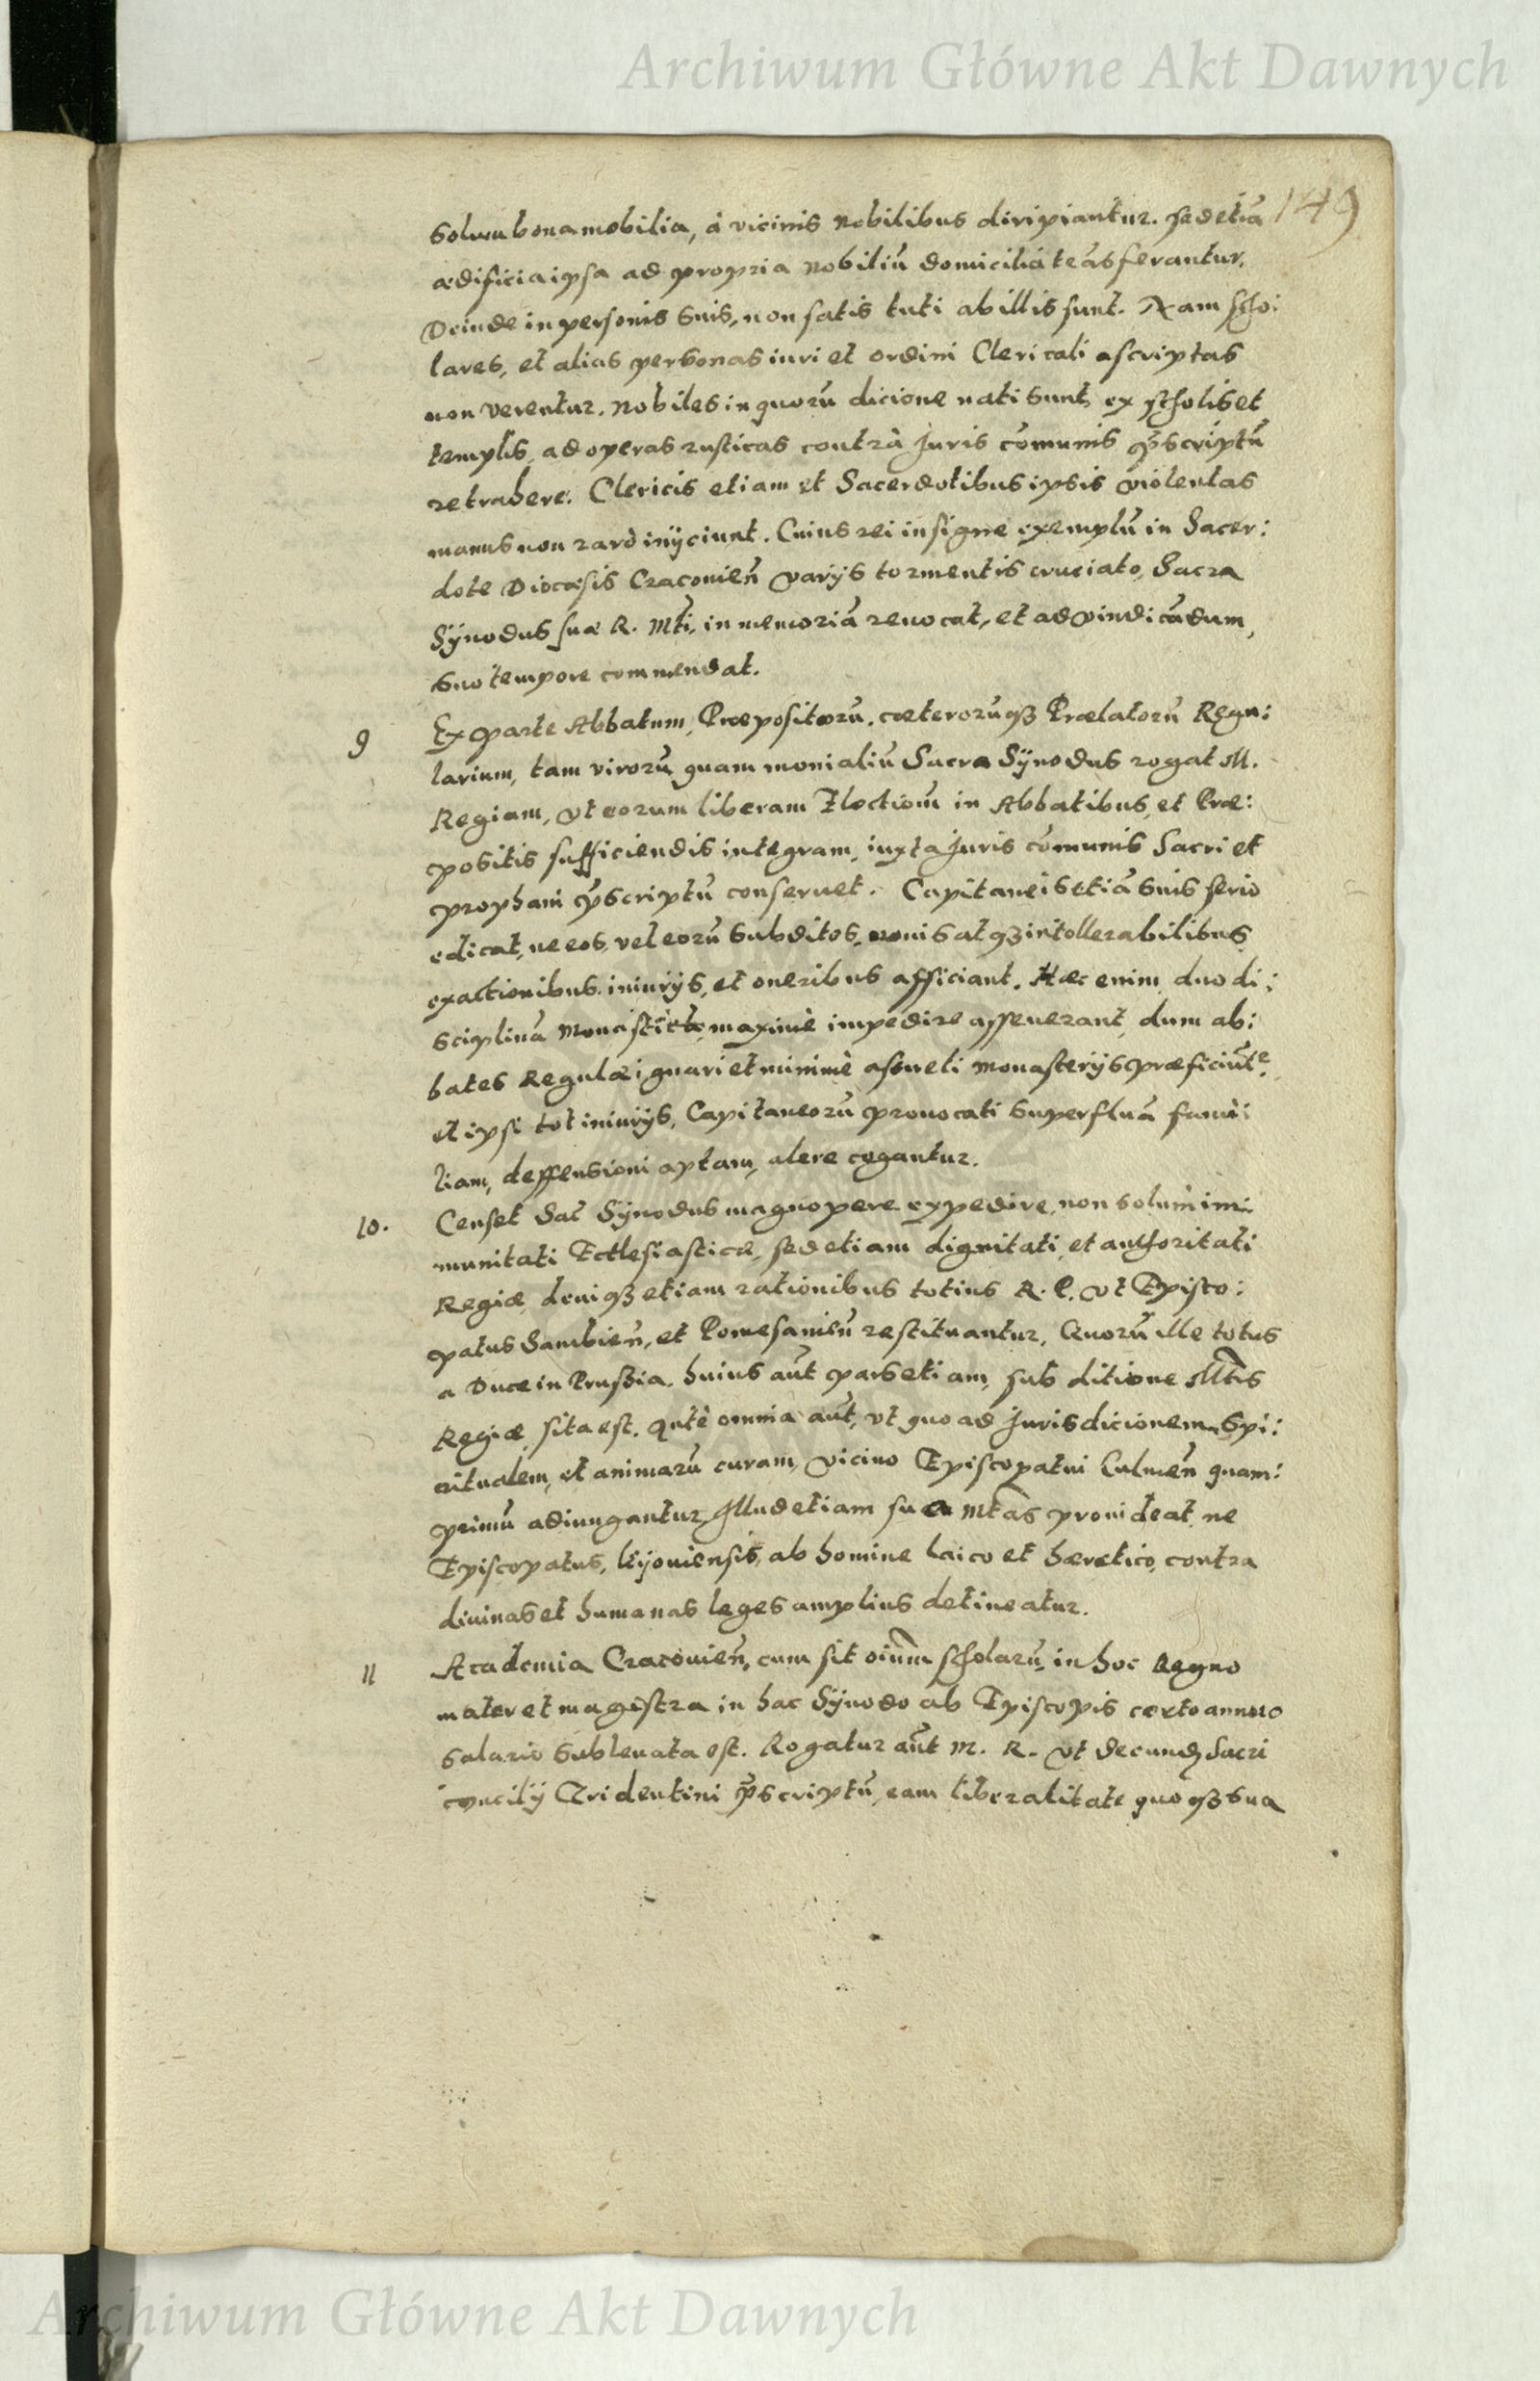 Archiwum Główne Akt Dawnych
149
solum bona mobilia, à vicinis nobilibus diripiantur. sed etiã
ædificia ipsa ad propria nobiliũ domicilia trãsferantur,
Deinde in personis suis, non satis tuti ab illis sunt. Nam scho:
lares, et alias personas iuri et ordini Clericali ascriptas
non verentur. nobiles in quorũ dicione nati sunt, ex scholis et
templis, ad operas rusticas contrà Juris cõmunis p̃scriptũ
retrahere. Clericis etiam et Sacerdotibus ipsis violentas
manus non rarò inijciunt. Cuius rei insigne exemplũ in Sacer:
dote Diocæsis Cracouieñ varijs tormentis cruciato, Sacra
Sÿnodus suæ R. Mti, in memoriã reuocat, et ad vindicãdum,
suo tempore commendat.
9 Ex parte Abbatum, Præpositorũ, cæterorũq3 Prælatorũ Regu:
larium, tam virorũ quam monialiũ Sacra Sÿnodus rogat M.
Regiam, vt eorum liberam Electionẽ in Abbatibus, et Præ:
positis sufficiendis integram, iuxta Juris cõmunis Sacri et
prophani p̃scriptũ conseruet. Capitaneis etiã suis serio
edicat, ne eos, vel eorũ subditos, nouis atq3 intollerabilibus
exactionibus, iniurijs, et oneribus afficiant. Hæc enim duo di:
sciplinã monasticã maximè impedire asseuerant, dum ab:
bates Regulæ ignari et minimè assueti monasterijs præficiũtr,
et ipsi tot iniurijs, Capitaneorũ prouocati superfluã fami:
liam, deffensioni aptam, alere cogantur.
10. Censet Sac Sÿnodus magnopere expedire, non solum im:
munitati Ecclesiasticæ, sed etiam dignitati, et authoritati
Regiæ, deniq3 etiam rationibus totius R. P. vt Episco:
patus Sambieñ, et Pomesanieñ restituantur, Quorũ ille totus
a Duce in Prussia. huius aũt pars etiam, sub ditione Mtis
Regiæ, sita est. Ante omnia aũt, vt quo ad Jurisdicionem Spi:
ritualem, et animarũ curam, vicino Episcopatui Culmeñ quam:
primũ adiungantur, Illud etiam sua Mtas prouideat, ne
Episcopatus, Kijouiensis, ab homine laico et hæretico, contra
diuinas et humanas leges amplius detineatur.
11 Academia Cracouieñ, cum sit oium̃ scholarũ, in hoc Regno
mater et magistra in hac Sÿnodo ab Episcopis certo annuo
salario subleuata est. Rogatur aũt M. R. vt secund3 Sacri
concilij Tridentini p̃scriptũ, eam liberalitate quoq3 sua
Archiwum Główne Akt Dawnych